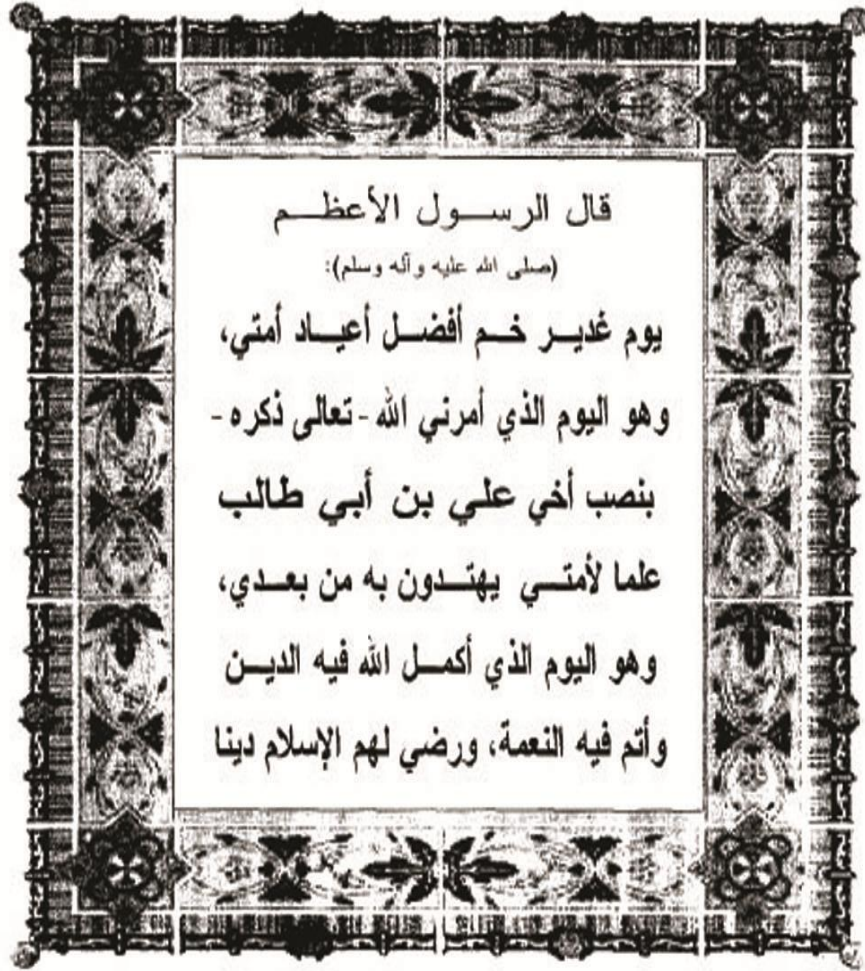 قال الرسول الأعظم
(صلى الله عليه وآله وسلم):
يوم غدير خم أفضل أعياد أمتي،
وهو اليوم الذي أمرني الله - تعالى ذكره -
بنصب أخي علي بن أبي طالب
علما لأمتي يهتدون به من بعدي،
وهو اليوم الذي أكمل الله فيه الدين
وأتم فيه النعمة، ورضي لهم الإسلام دينا